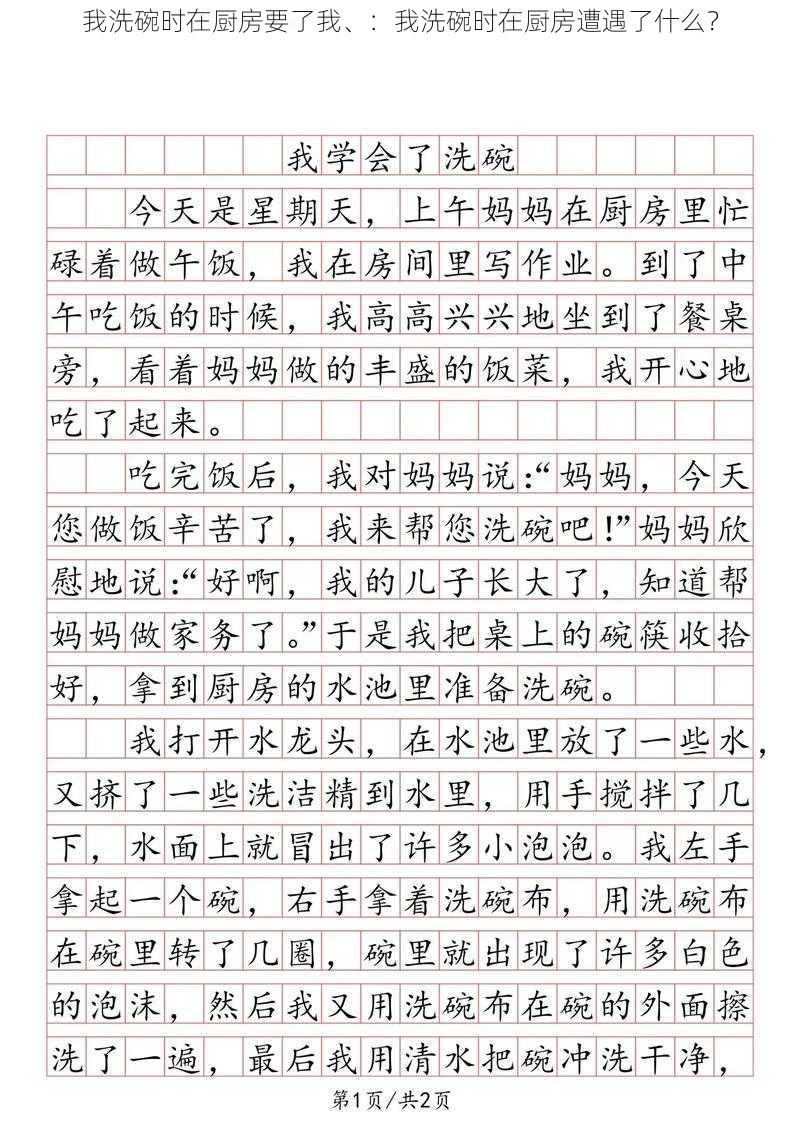 我洗碗时在厨房要了我、：我洗碗时在厨房遭遇了什么？
我学会了洗碗
今天是星期天，上午妈妈在厨房里忙
碌着做午饭，我在房间里写作业。到了中
午吃饭的时候，我高高兴兴地坐到了餐桌
旁，看着妈妈做的丰盛的饭菜，我开心地
吃了起来。
吃完饭后，我对妈妈说：“妈妈，今天
您做饭辛苦了，我来帮您洗碗吧！”妈妈欣
慰地说：“好啊，我的儿子长大了，知道帮
妈妈做家务了。”于是我把桌上的碗筷收拾
好，拿到厨房的水池里准备洗碗。
我打开水龙头，在水池里放了一些水，
又挤了一些洗洁精到水里，用手搅拌了几
下，水面上就冒出了许多小泡泡。我左手
拿起一个碗，右手拿着洗碗布，用洗碗布
在碗里转了几圈，碗里就出现了许多白色
的泡沫，然后我又用洗碗布在碗的外面擦
洗了一遍，最后我用清水把碗冲洗干净，
第1页/共2页